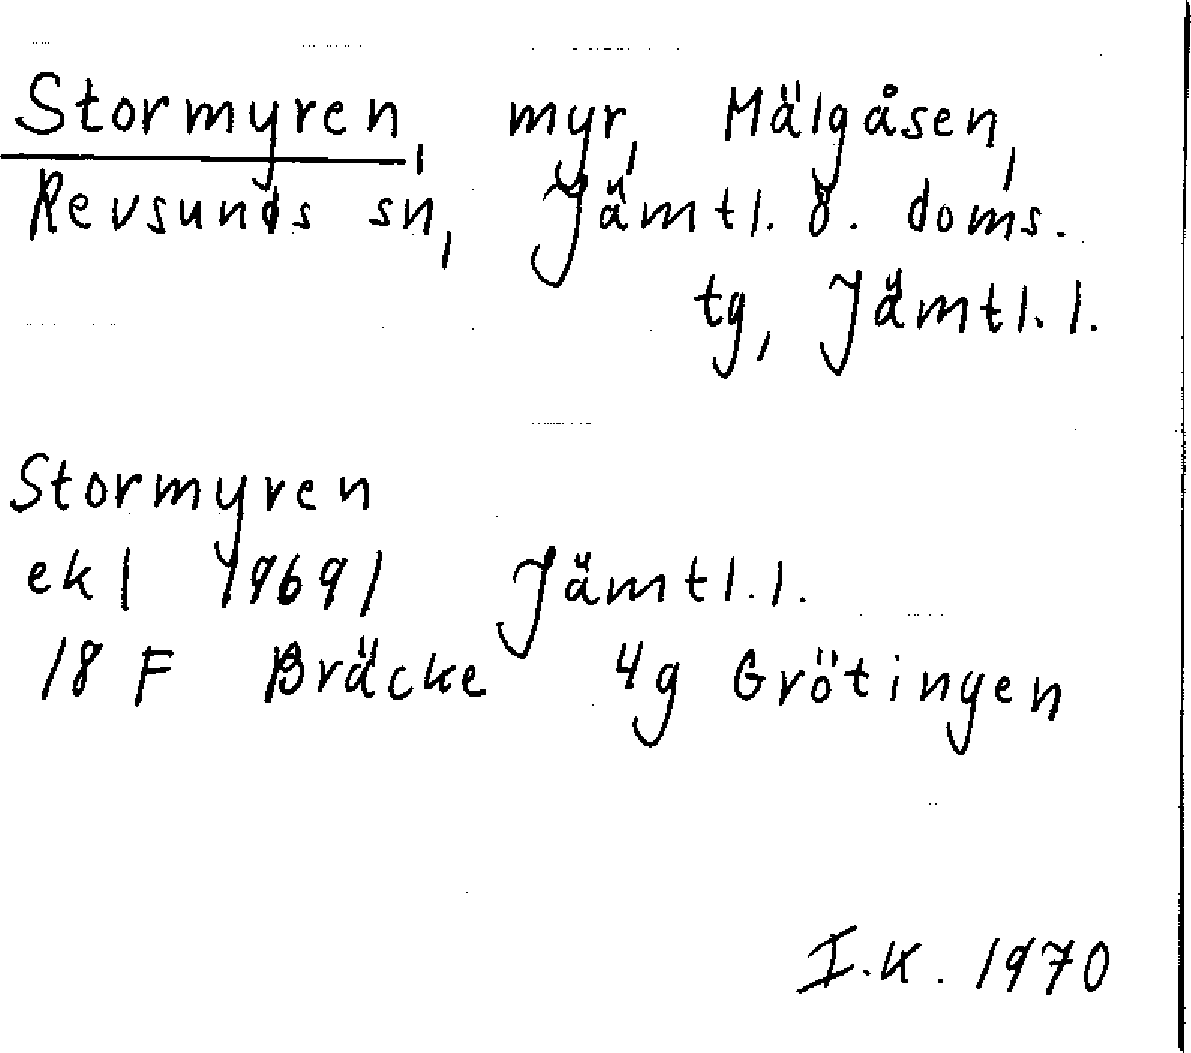 Stormyren, myr, Mälgåsen,
Revsunds sn, Jämtl. ö. doms.
tg, Jämtl. l.
Stormyren
ekl 1969/ Jämtl. l.
18 F Bräcke 4g Grötingen
I.K. 1970